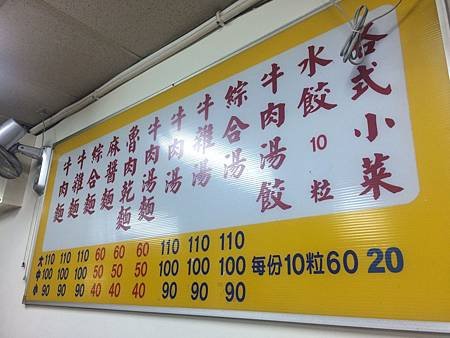 各式小菜
水餃10粒
牛肉湯餃
綜合湯
牛雜湯
牛肉湯
牛肉湯麵
魯肉乾麵
麻醬麵
綜合麵
牛雜麵
牛肉麵
大 110 110 110 60 60 60 110 110 110
中 100 100 100 50 50 50 100 100 100 每份10粒60 20
小 90 90 90 40 40 40 90 90 90